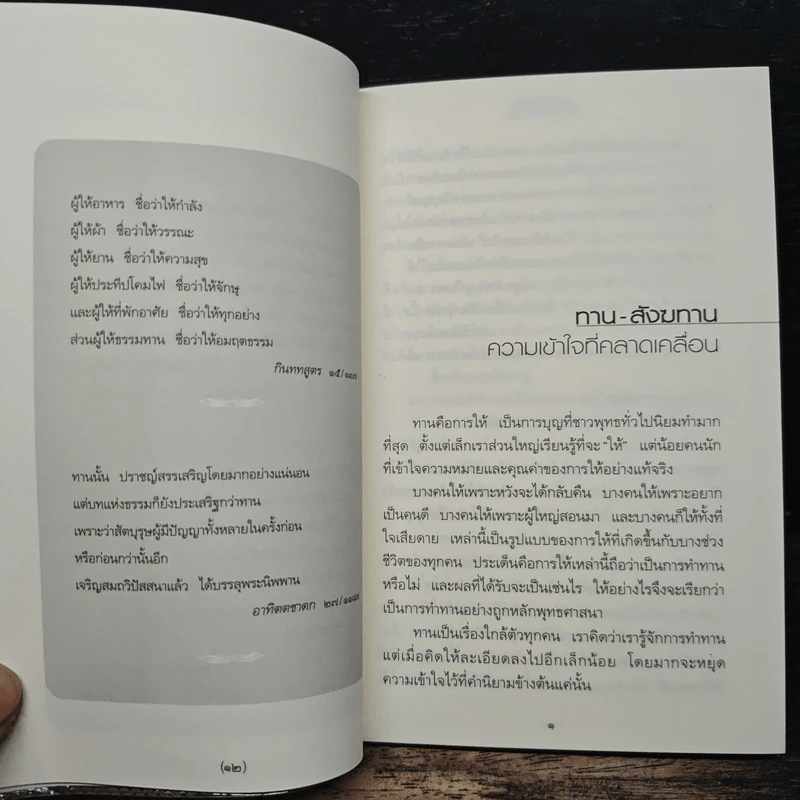 ผู้ให้อาหาร ชื่อว่าให้กำลัง
ผู้ให้ผ้า ชื่อว่าให้วรรณะ
ผู้ให้ยาน ชื่อว่าให้ความสุข
ผู้ให้ประทีปโคมไฟ ชื่อว่าให้จักษุ
และผู้ให้ที่พักอาศัย ชื่อว่าให้ทุกอย่าง
ส่วนผู้ให้ธรรมทาน ชื่อว่าให้อมฤตธรรม
กินททสูตร ๑๕/๑๓๗
ทานนั้น ปราชญ์สรรเสริญโดยมากอย่างแน่นอน
แต่บทแห่งธรรมก็ยังประเสริฐกว่าทาน
เพราะว่าสัตบุรุษผู้มีปัญญาทั้งหลายในครั้งก่อน
หรือก่อนกว่านั้นอีก
เจริญสมถวิปัสสนาแล้ว ได้บรรลุพระนิพพาน
อาทิตตชาดก ๒๗/
(๑๒)
ทาน - สังฆทาน
ความเข้าใจที่คลาดเคลื่อน
ทานคือการให้ เป็นการบุญที่ชาวพุทธทั่วไปนิยมทำมาก
ที่สุด ตั้งแต่เล็กเราส่วนใหญ่เรียนรู้ที่จะ “ให้” แต่น้อยคนนัก
ที่เข้าใจความหมายและคุณค่าของการให้อย่างแท้จริง
บางคนให้เพราะหวังจะได้กลับคืน บางคนให้เพราะอยาก
เป็นคนดี บางคนให้เพราะผู้ใหญ่สอนมา และบางคนก็ให้ทั้งที่
ใจเสียดาย เหล่านี้เป็นรูปแบบของการให้ที่เกิดขึ้นกับบางช่วง
ชีวิตของทุกคน ประเด็นคือการให้เหล่านี้ถือว่าเป็นการทำทาน
หรือไม่ และผลที่ได้รับจะเป็นเช่นไร ให้อย่างไรจึงจะเรียกว่า
เป็นการทำทานอย่างถูกหลักพุทธศาสนา
ทานเป็นเรื่องใกล้ตัวทุกคน เราคิดว่าเรารู้จักการทำทาน
แต่เมื่อคิดให้ละเอียดลงไปอีกเล็กน้อย โดยมากจะหยุด
ความเข้าใจไว้ที่คำนิยามข้างต้นแค่นั้น
๑